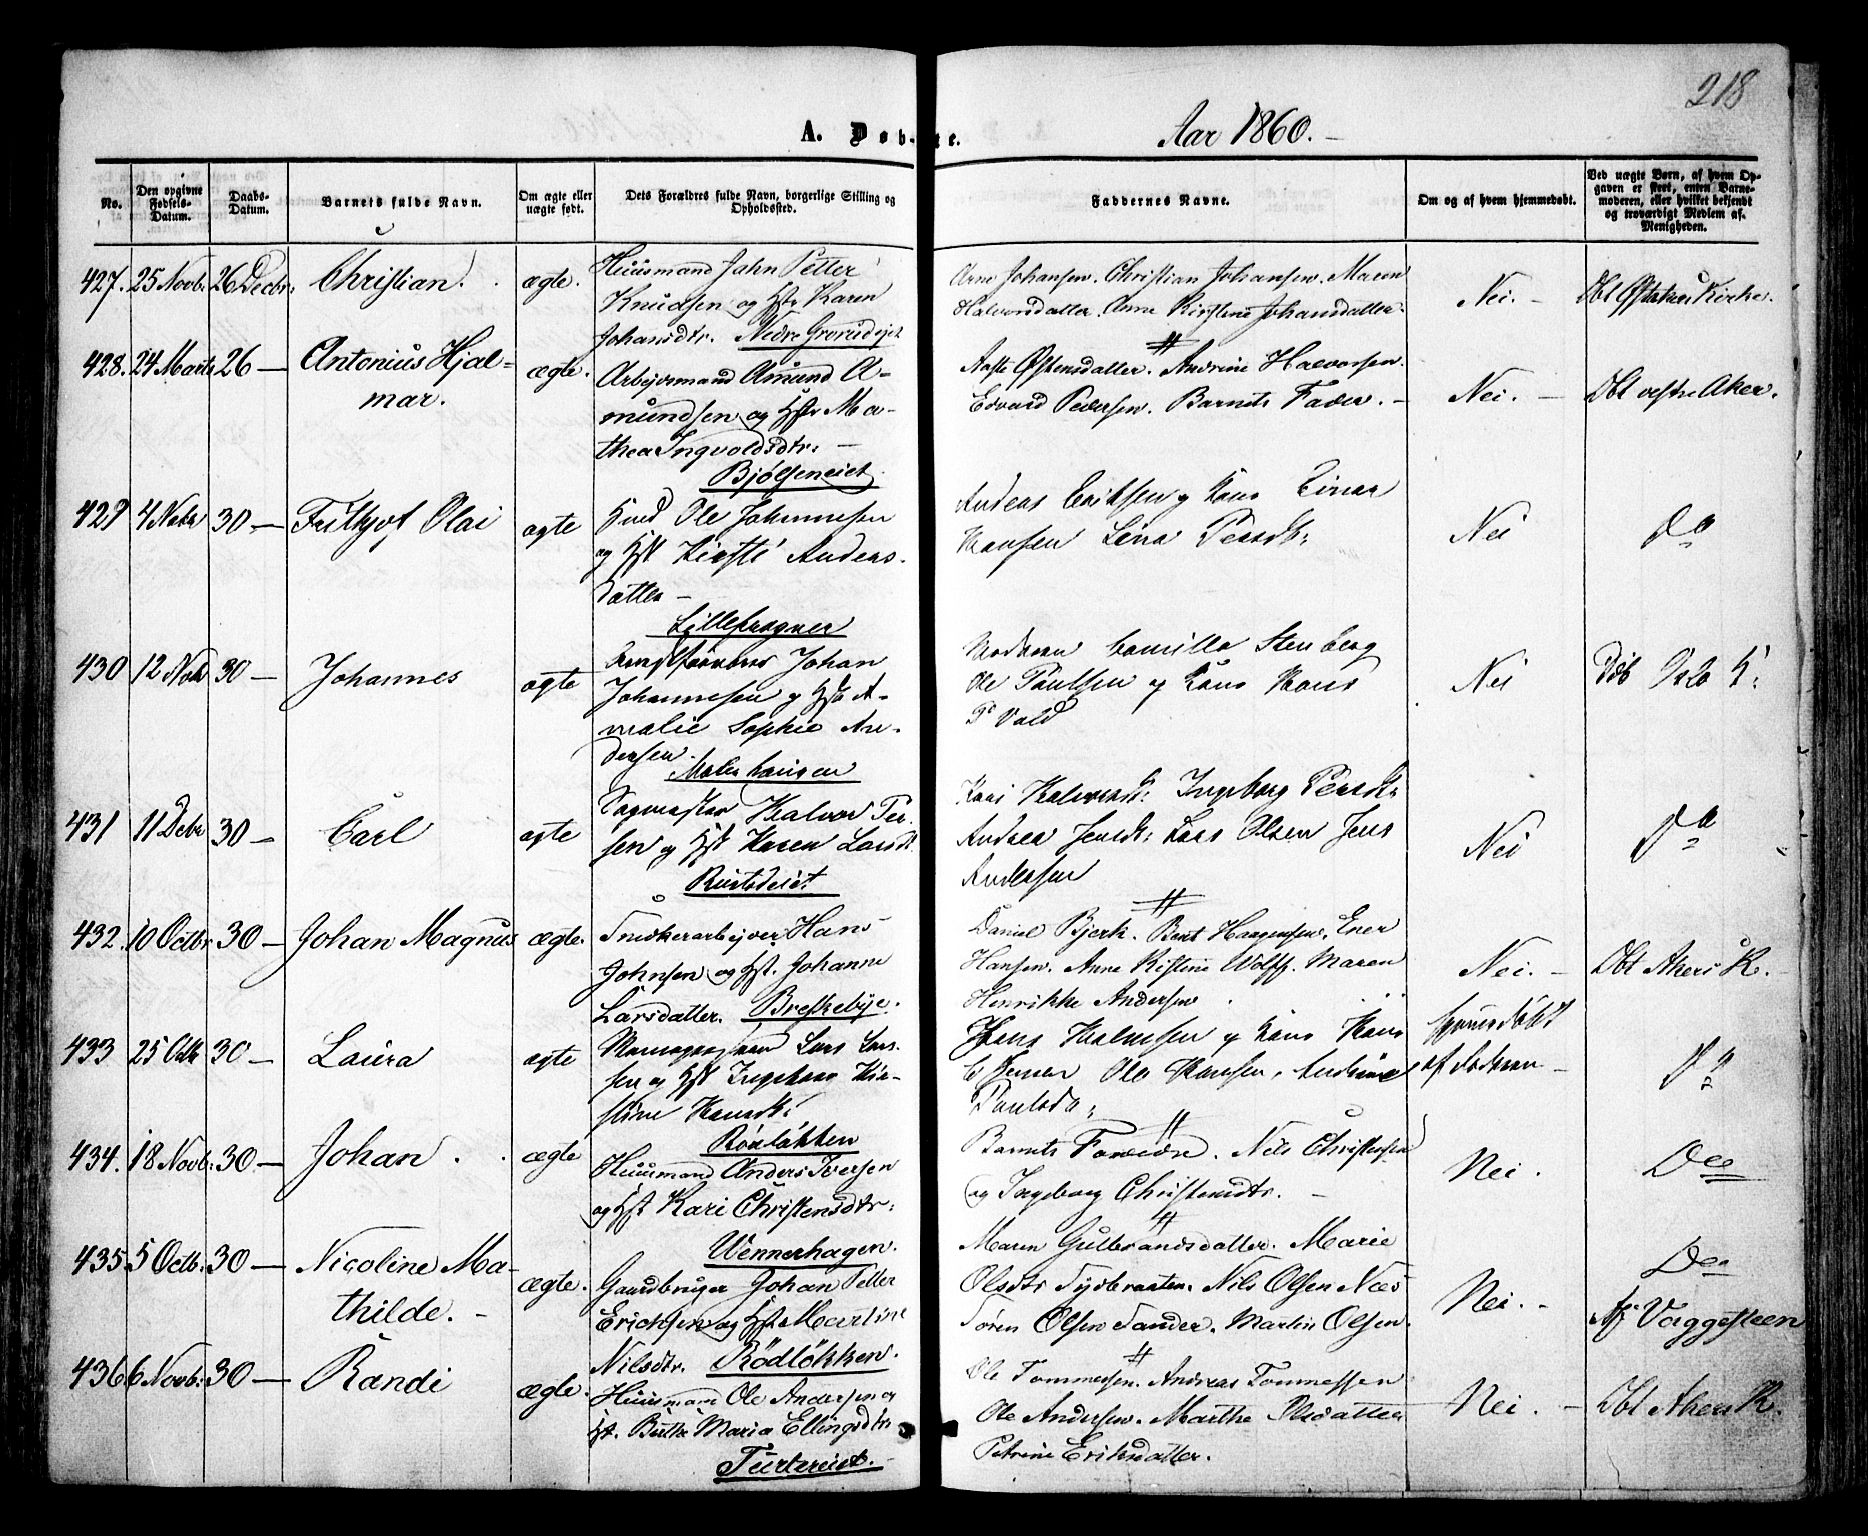 218
A. Døbte. Aar 1860.-
No.
Den opgivne Fødsels-Datum.
Daabs-Datum.
Barnets fulde Navn.
Om ægte eller uægte født.
Dets Forældres fulde Navn, borgerlige Stilling og Opholdssted.
Faddernes Navne.
Om og af hvem hjemmedøbt.
Ved uægte Børn, af hvem Opgaven er skeet, enten Barnemoderen, eller hvilket bekjendt og troværdigt Medlem af Menigheden.
427. 25 Novb. 26 Decbr. Christian. ægte.
Huusmand Jahn Petter
Knudsen og Hst. Karen
Johansdtr. Nedre Grorudejet
Arne Johansen. Christian Johansen. Maren
Halvorsdatter. Anne Kirstine Johansdatter.
Nei. - Dbt Østakers Kirke.
428. 24 Marts 26 — Antonius Hjal=
mar. ægte.
Arbejdsmand Amund A-
mundsen og Hst. Ma-
thea Ingvoldsdtr. —
Bjølseneiet.
Aaste Østensdatter. Andrine Halvorsen
Edvard Pedersen. Barnets Fader. -
Nei. - Dbt vestre Aker.
429 4 Nobr 30 — Frithjof Olai ægte
Ole Johannesen
og Hst Kirsti Anders-
datter —
Lillefrogner
Anders Eriksen og Kone Einar
Hansen Lina Persdt:
Nei Do
430 12 Nobr 30 — Johannes ægte
Johan
Johannesen og Hst A-
malie Sophie An-
dersen.
Malerhaugen
Camilla Stenberg
Ole Paulsen og Kone Hans
P. Vold
Nei Døb Oslo K:
431 11 Debr 30 — Carl ægte
Sagmester Halvor Per-
sen og Hst Karen Larsdt.
Rustadeiet
Kari Halvorsdt: Ingeborg Persdt:
Andrea Jensdt: Lars Olsen Jens
Andersen
Nei Do
432. 10 Octbr. 30 — Johan Magnus ægte.
Snedkerarbejder Hans
Johnsen og Hst. Johanne
Larsdatter. Breskebye.
Daniel Bjerk. Bent Haagensen. Ener
Hansen. Anne Kistine Wolff. Maren
Henrikke Andersen
Nei. - Dbt Akers K.
433 25 Octb 30 — Laura ægte
Lars Lar-
sen og Hst Ingeborg Kir-
stine Hansdt:
Rønløkken
Hans Halvorsen og Kone Hans
Ole Hansen, Andrine
Paulsdt:
hjemmedøbt
af Jordmoder — Do
434. 18 Novb. 30 — Johan. ægte
Huusmand Anders Iversen
og Hst Kari Christensdtr:
Wennerhagen.
Barnets Forældre. Nils Christensen
og Ingeborg Christensdtr. -
Nei. Do
435 5 Octb. 30 — Nicoline Ma-
thilde. - ægte.
Gaardbruger Johan Petter
Erichsen og Hst Martine
Nilsdtr. Rödløkken.
Maren Gulbrandsdatter. Marie
Olsdtr Sydbraaten. Nils Olsen Næs
Søren Olsen Sander. Martin Olsen.
Nei. - Do
Af Vaggesteen
436 6 Novb. 30 — Randi ægte.
Huusmand Ole Andersen og
Hst. Berthe Maria Ellingsdtr
Turtereiet. -
Ole Tommesen. Andreas Tommessen
Ole Andersen. Marthe Olsdatter
Petrine Eriksdatter.
Nei. - Dbt Akers K.